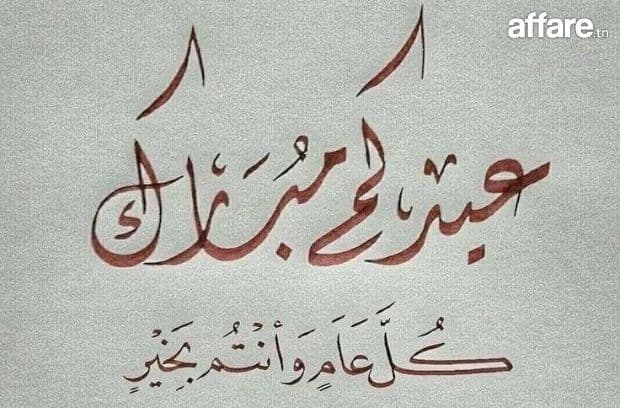 affare.tn
عيدكم مُبَارَك
كُلَّ عَامٍ وَأَنْتُم بِخَيْرٍ